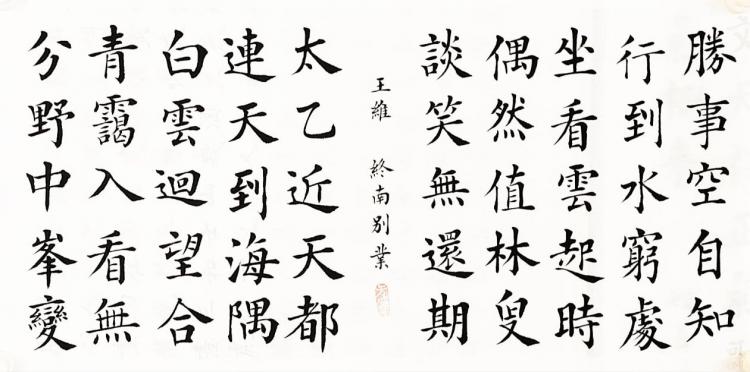 勝事空自知
行到水窮處
坐看雲起時
偶然值林叟
談笑無還期
王維 終南別業
太乙近天都
連天到海隅
白雲迴望合
青靄入看無
分野中峯變